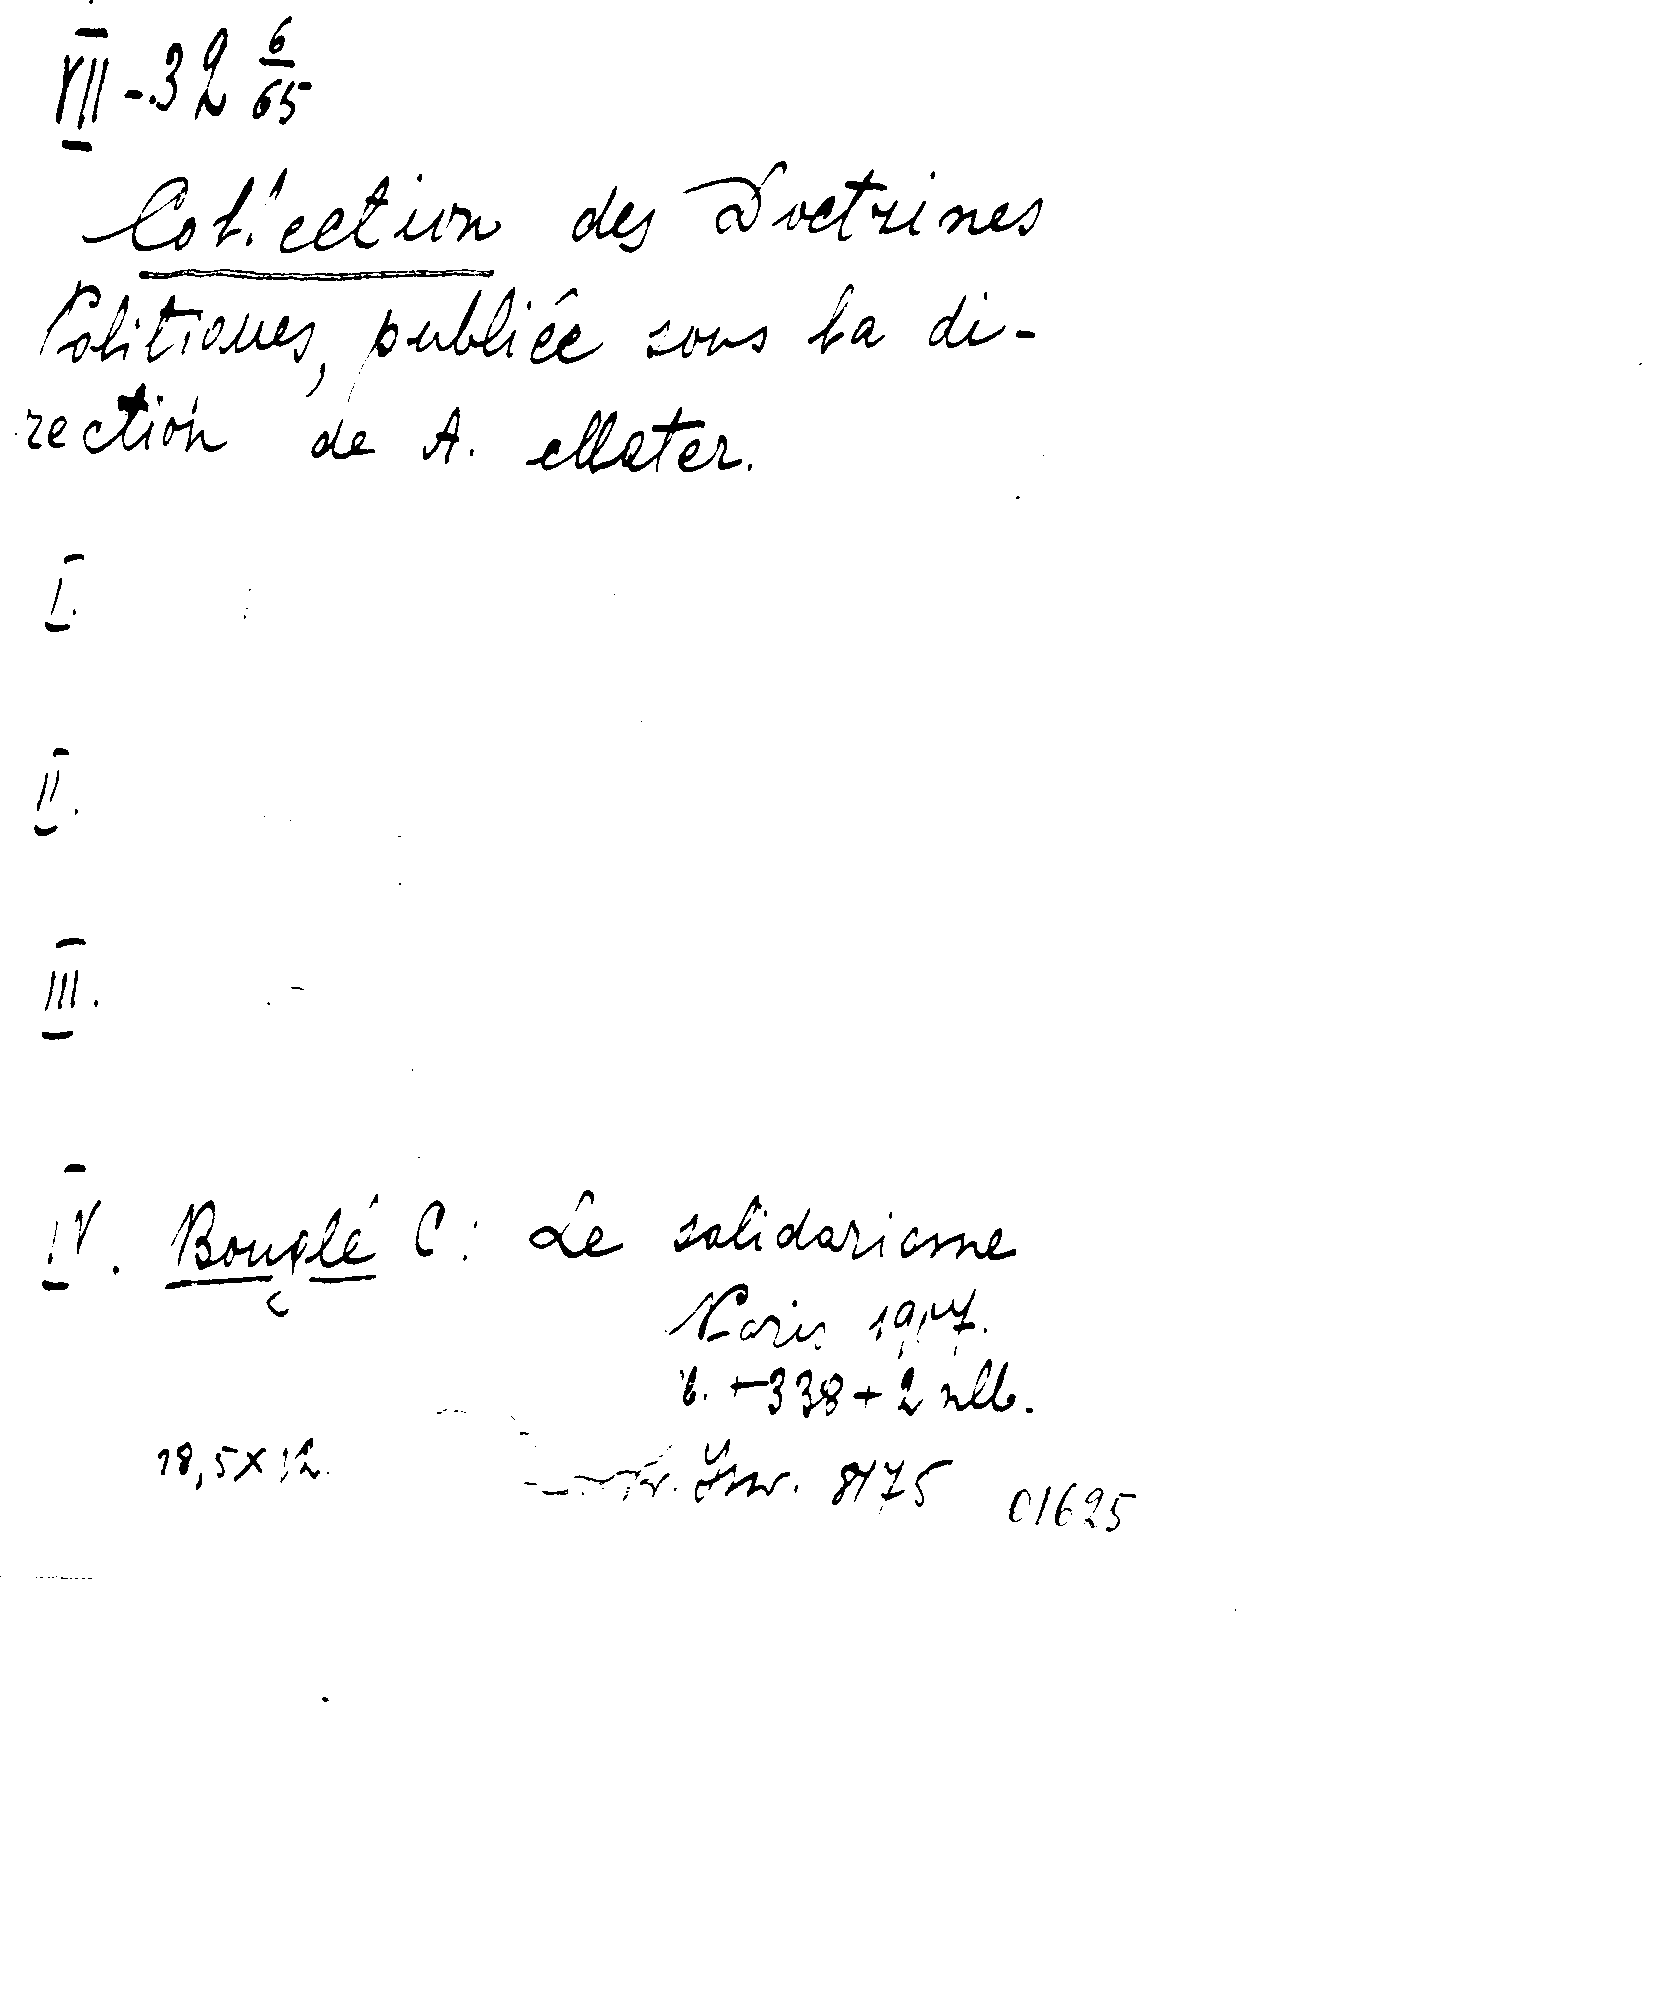 VII - 32 6/65
Collection des Doctrines
Politiques, publiée sous la di-
rection de A. Mater.
I.
II.
III.
IV. Bouglé C: Le solidarisme
Paris 1907.
+ 338 + 2 nlb.
18,5 x 12
Inw. 8175 01625